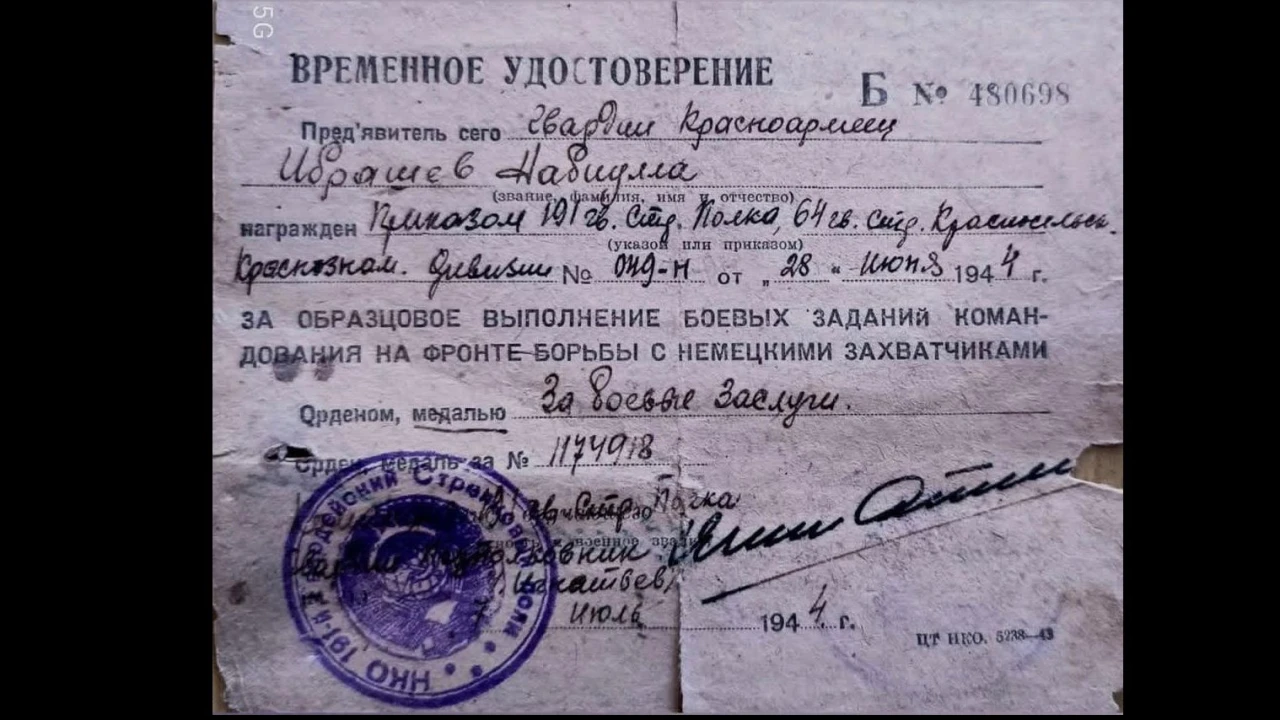 5G
ВРЕМЕННОЕ УДОСТОВЕРЕНИЕ
Б № 480698
Пред'явитель сего Гвардии Красноармеец
Ибрашев Набиулла
(звание, фамилия, имя и отчество)
награжден Приказом 191 гв. Стр. Полка, 64 гв. Стр. Красносельск.
(указом или приказом)
Краснознам. Дивизии № 049-н от „28“ Июня 1944 г.
ЗА ОБРАЗЦОВОЕ ВЫПОЛНЕНИЕ БОЕВЫХ ЗАДАНИЙ КОМАН-
ДОВАНИЯ НА ФРОНТЕ БОРЬБЫ С НЕМЕЦКИМИ ЗАХВАТЧИКАМИ
Орденом, медалью За боевые Заслуги.
Орден, медаль за № 1174918
гв. Стр. Полка
Гвардии Подполковник
7 Июль 1944 г.
ЦТ НКО. 5238—43
НКО 191-й Гвардейский Стрелковый полк